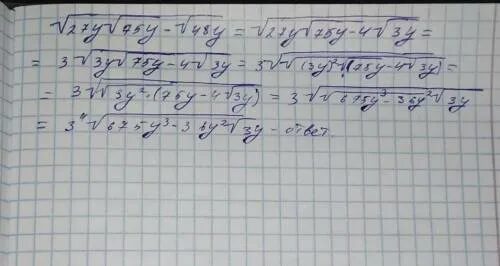 √27y√75y-√48y = √27y√75y-4√3y =
= 3√3y√75y-4√3y = 3√√(3y)²·(75y-4√3y) =
= 3√√3y²·(75y-4√3y) = 3√√675y³-36y²√3y
= 3⁴√675y³-36y²√3y - ответ.